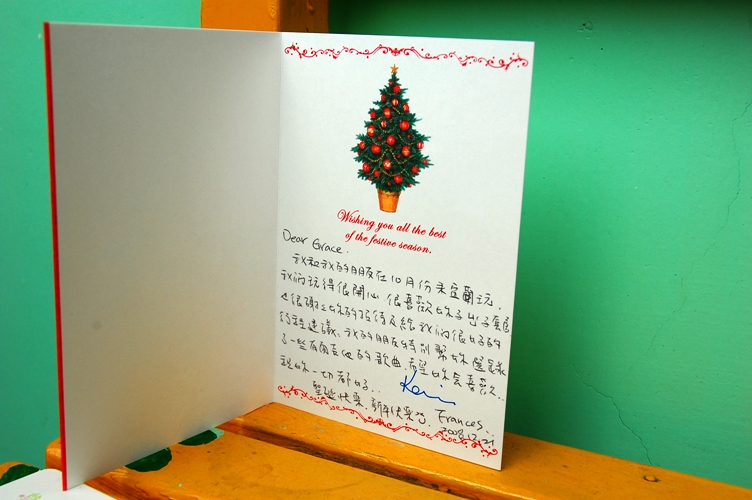 Wishing you all the best
of the festive season.
Dear Grace.
我和我的朋友在10月份來宜蘭玩.
我们玩得很開心 很喜歡妳
很謝謝妳的招待及給我们很好的
建議. 我的朋友特别幫妳
了一些有關吉他的歌曲. 希望妳會喜歡.
祝妳一切都好.. Kevin
聖誕快樂. 新年快樂. Frances.
2008.12.21